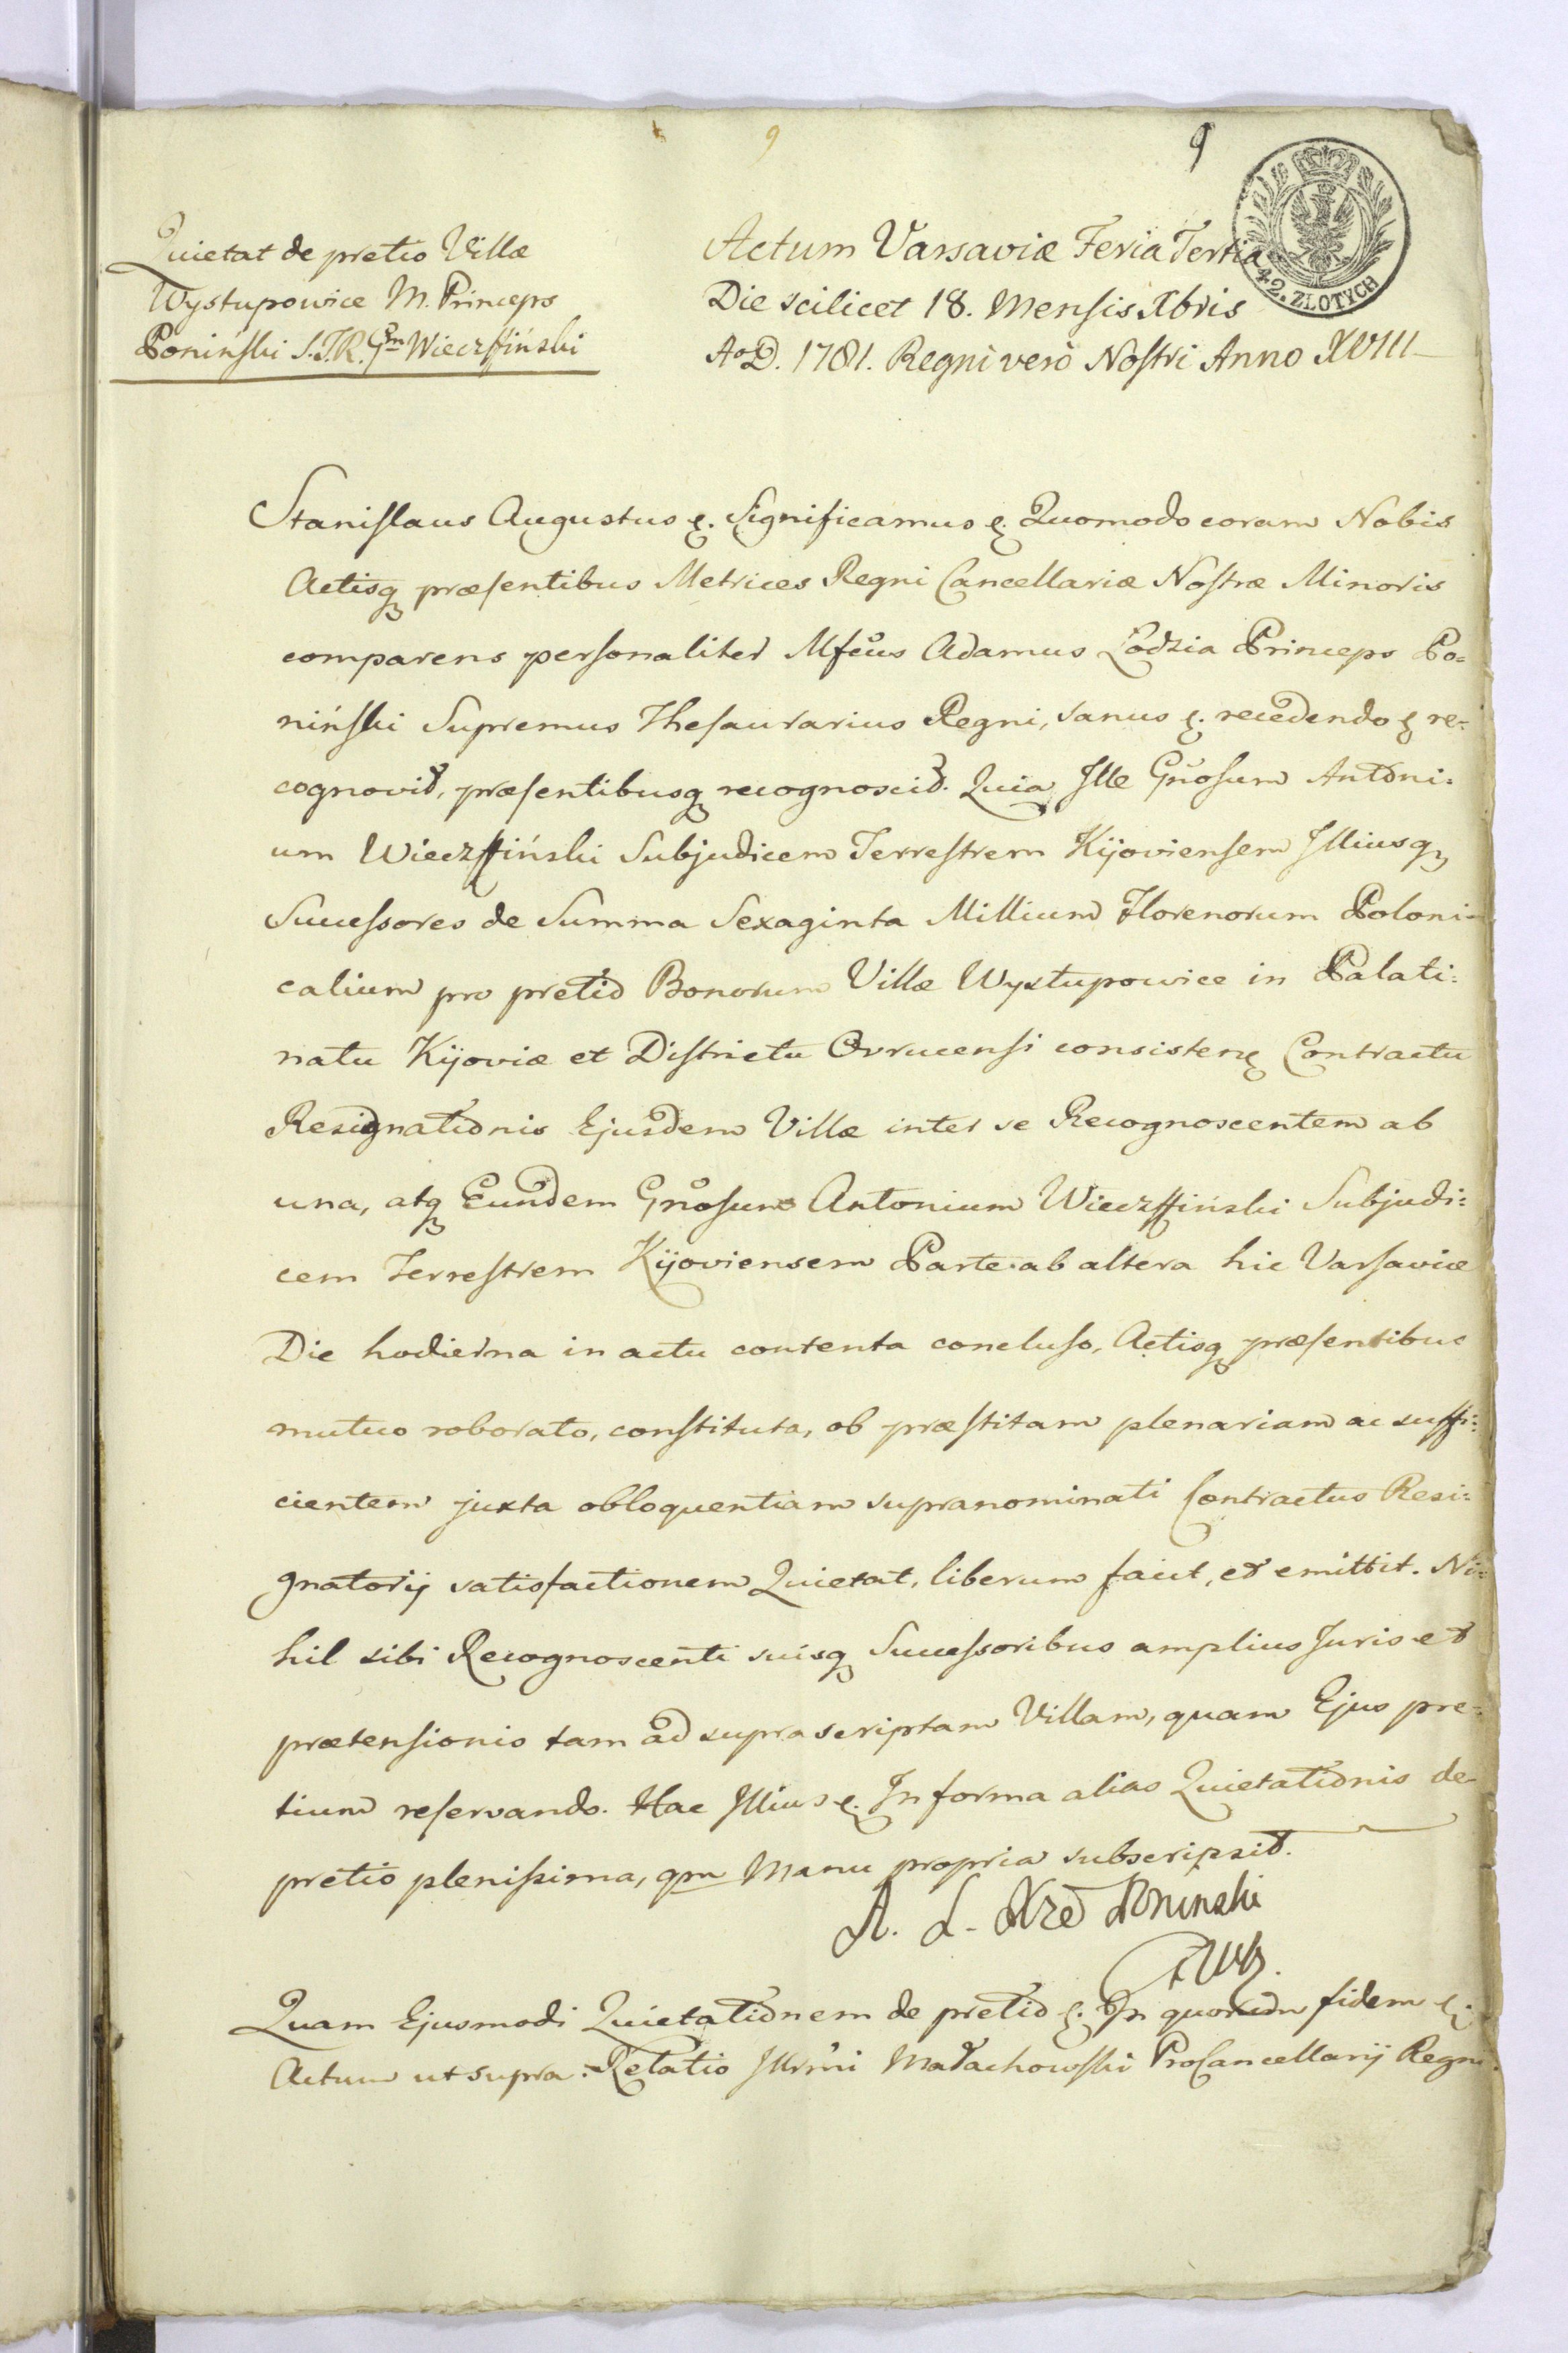 9
9
42. ZŁOTYCH
Quietat de pretio Villæ
Wystupowice M. Princeps
Poniński S.T.R. Gm Wieczffiński
Actum Varsaviæ Feria Tertia
Die scilicet 18. Mensis Xbris
AoD. 1781. Regni verò Nostri Anno XVIII
Stanislaus Augustus &. Significamus &. Quomodo coram Nobis
Actisq præsentibus Metrices Regni Cancellariæ Nostræ Minoris
comparens personaliter Mfcus Adamus Lodzia Princeps Po=
niński Supremus Thesaurarius Regni, sanus &. recedendo & re=
cognovit, præsentibusq recognoscit. Quia Ille Gnosum Antoni=
um Wieczffiński Subjudicem Terrestrem Kijoviensem Illiusq
Successores de Summa Sexaginta Millium Florenorum Poloni=
calium pro pretio Bonorum Villæ Wystupowice in Palati=
natu Kijoviæ et Districtu Ovrucensi consisten& Contractu
Resignationis Ejusdem Villæ inter se Recognoscentem ab
una, atq Eundem Gnosum Antonium Wieczffiński Subjudi=
cem Terrestrem Kijoviensem Parte ab altera hic Varsaviæ
Die hodierna in actu contenta concluso, Actisq præsentibus
mutuo roborato, constituta, ob præstitam plenariam ac suffi=
cientem juxta obloquentiam supranominati Contractus Resi=
gnatorij satisfactionem Quietat, liberum facit, et emittit. Ni=
hil sibi Recognoscenti suisq Successoribus amplius Juris et
prætensionis tam ad suprascriptam Villam, quam Ejus pre=
tium reservando. Hac Illius &. In forma alias Quietationis de
pretio plenissima, qm Manu propria subscripsit.
A. L. Xże Poninski
Quam Ejusmodi Quietationem de pretio &. In quorum fidem &.
Actum ut supra. Relatio Illrmi Małachowski ProCancellarij Regni.